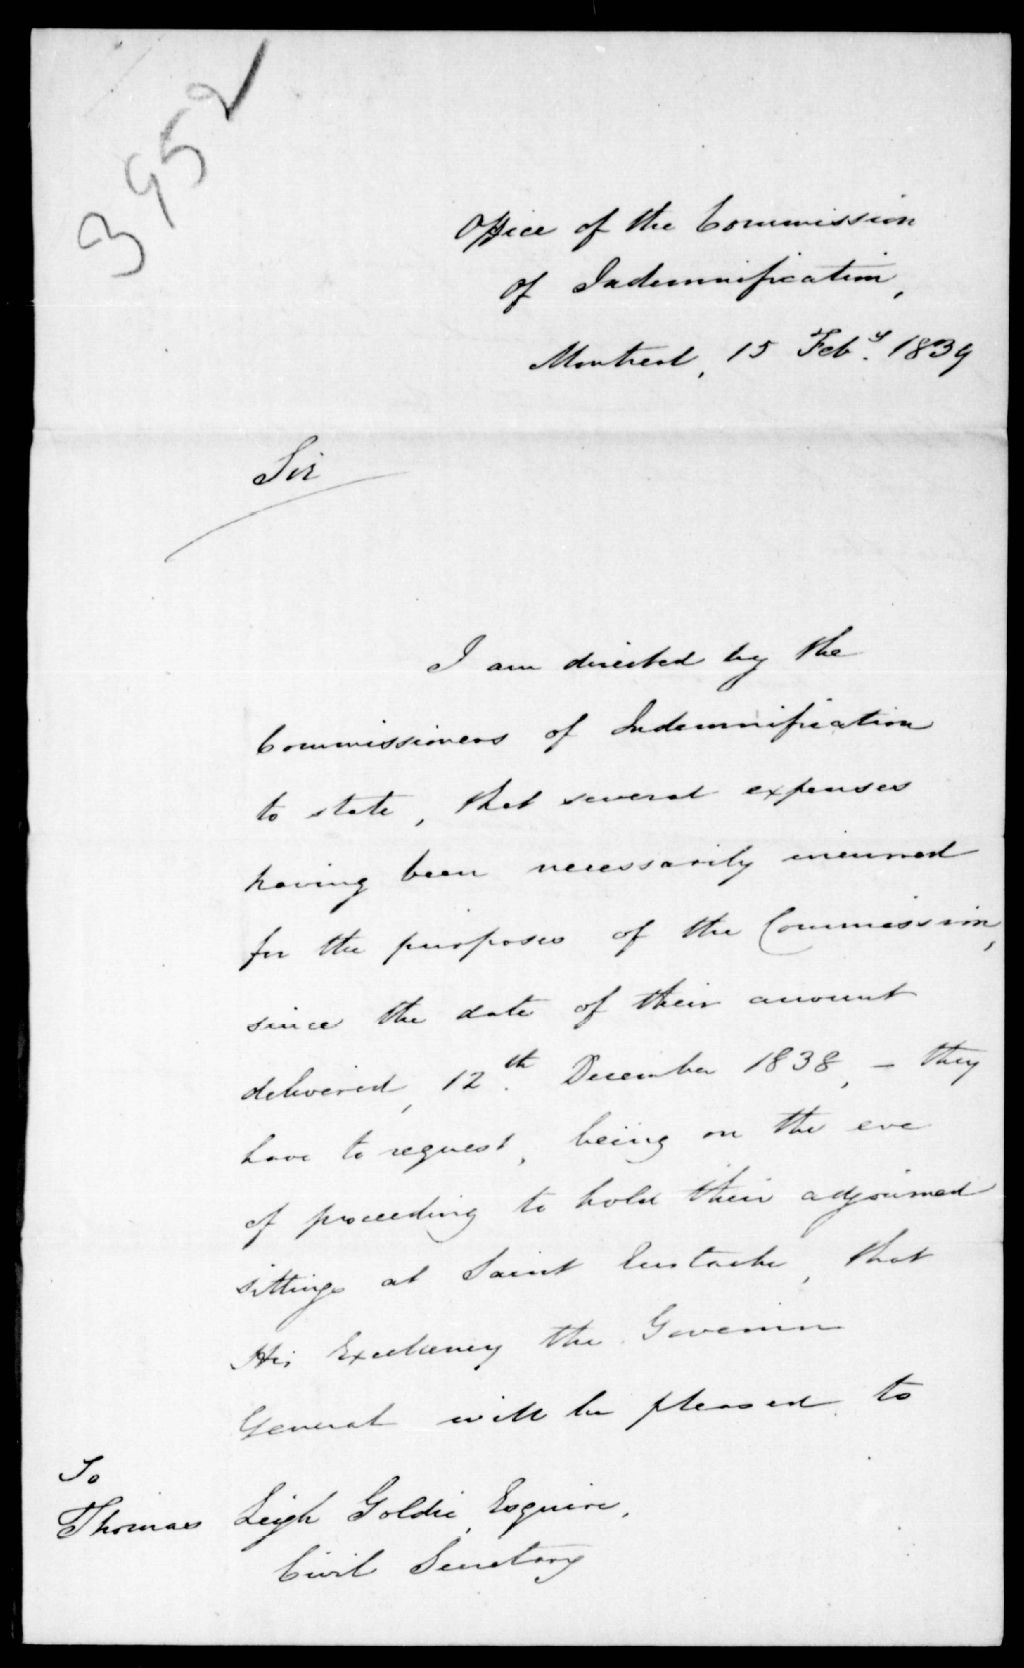 3952
Office of the Commission
of Indemnification,
Montreal, 15 Feby. 1839
Sir
I am directed by the
Commissioners of Indemnification
to state, that several expenses
having been necessarily incurred
for the purposes of the Commission,
since the date of their account
delivered, 12th. December 1838, - they
have to request, being on the eve
of proceeding to hold their adjourned
sittings at Saint Eustache, that
His Excellency the Governor
General will be pleased to
To
Thomas Leigh Goldie, Esquire,
Civil Secretary